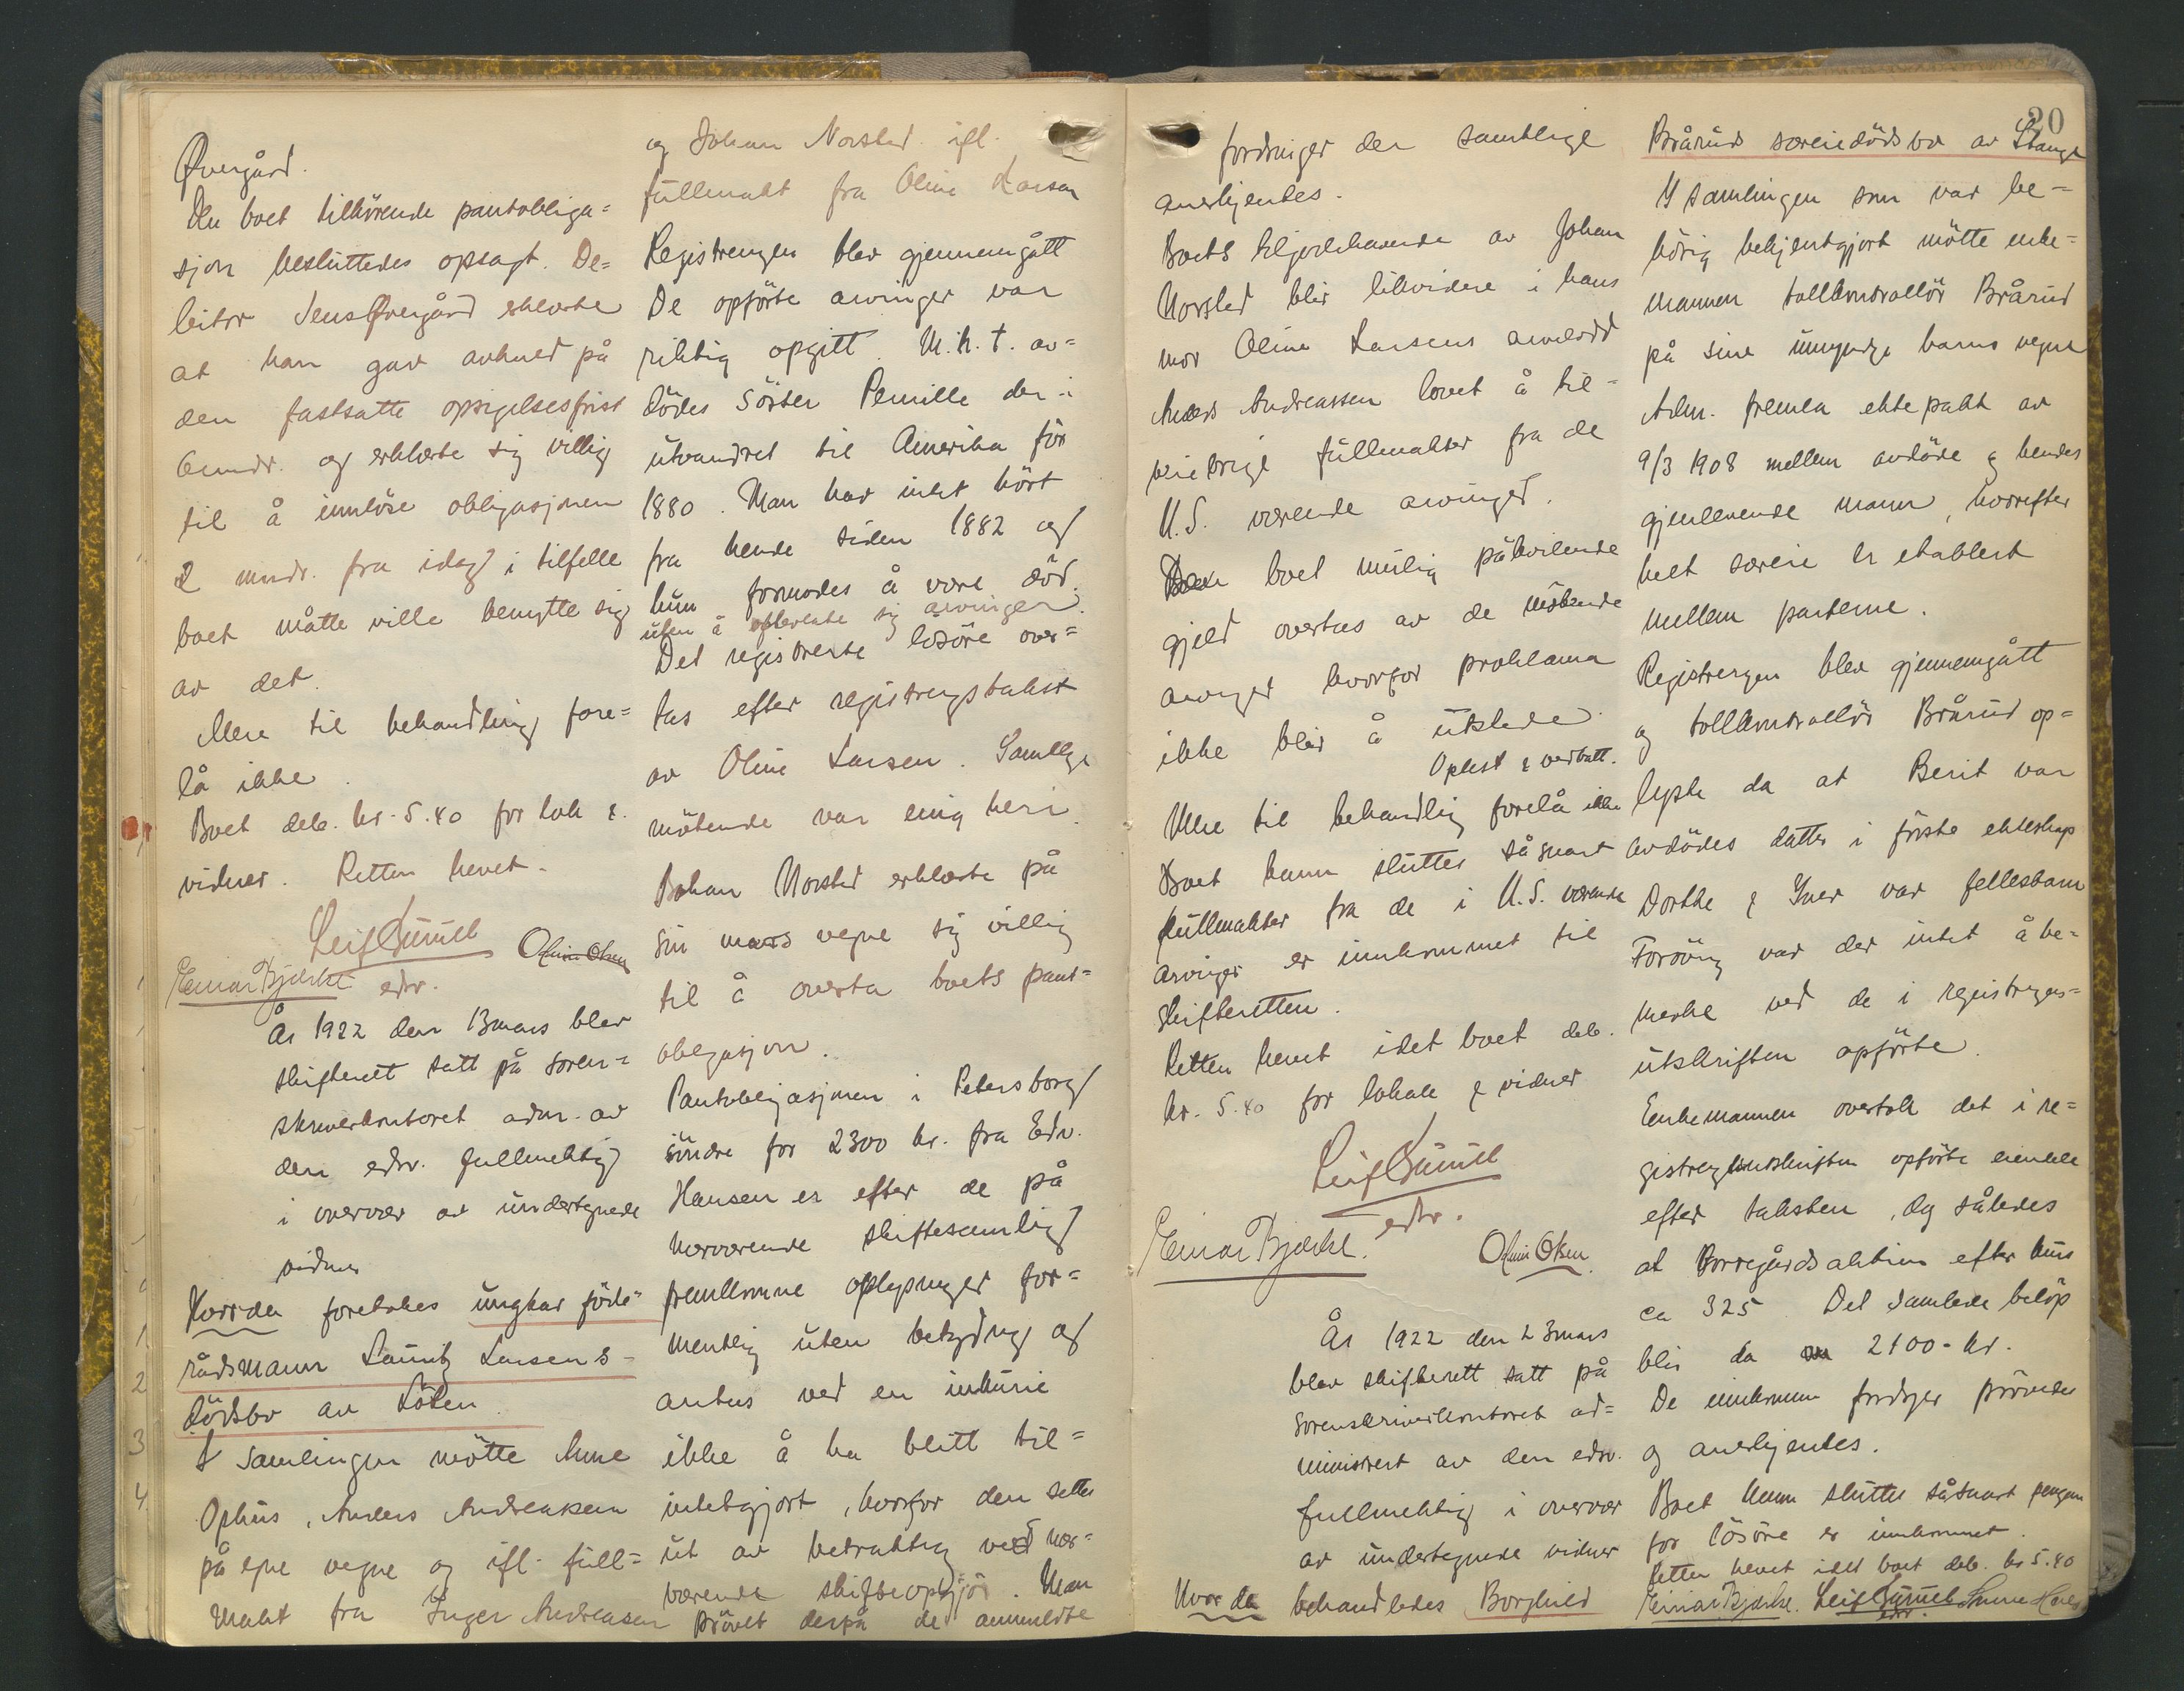 Øvergård.
Den boet tilhörende pantobliga=
sjon besluttedes opsagt. De=
bitor Jens Øvergård erklærte
at han gav avkald på
den fastsatte opsigelsesfrist
6 mndr. og erklærte sig villig
til å innlöse obligasjonen
2 mndr. fra idag i tilfelle
boet måtte ville benytte sig
av det.
Mere til behandling fore=
lå ikke.
Boet deb. kr. 5.40 for lok &
vidner. Retten hevet.
Leif Gunell
Einar Bjørke edsv. Olum Olsen
År 1922 den 13 mars blev
skifterett satt på soren=
skriverkontoret adm. av
den edsv. fullmektig
i overvær av undertegnede
vidner
Hvorda foretokes ungkar förde
rådsmann Lauritz Larsens
dödsbo av Löten.
I samlingen mötte Anne
Ophus, Anders Andreassen
på egne vegne og ifl. full=
makt fra Inger Andreassen
og Johan Norsted ifl.
fullmakt fra Oline Larsen
Registrengen blev gjennemgått
De opförte arvinger var
riktig opgitt. M.h.t. av=
dödes söster Pernille der
utvandret til Amerika för
1880. Man har intet hört
fra hende siden 1882 og
hun formodes å være död.
uten å efterlate sig arvinger.
Det registrerte lösöre over=
tas efter registreringstakst
av Oline Larsen. Samtlige
mötende var enig heri.
Johan Norsted erklærte på
sin mors vegne sig villig
til å overta boets pant=
obligasjon.
Pantobligasjonen i Petersborg
söndre for 2300 kr. fra Edv.
Hansen er efter de på
nærværende skiftesamling
fremkomne oplysninger for=
mentlig uten betydning og
antas ved en inkurie
ikke å ha blitt til=
intetgjort, hvorfor den settes
ut av betraktning ved nær=
værende skifteopgjör. Man
prövet derpå de anmeldte
20
fordringer der samtlige
anerkjentes.
Boets tilgodehavende av Johan
Norsted blir likvidere i hans
mor Oline Larsens arvelodd
Anders Andreassen lovet å til=
veiebringe fullmakter fra de
U.S. værende arvinger.
Den boet mulig påhvilende
gjeld overtas av de mötende
arvinger hvorfor proklama
ikke blir å utstede.
Oplest & vedtatt.
Mere til behandling forelå ikke
Boet kann sluttes såsnart
fullmakter fra de i U.S. værende
arvinger er innkommet til
skifteretten.
Retten hevet idet boet deb.
kr. 5.40 for lokale & vidner
Leif Gunell
edsv.
Einar Bjørke. Olum Olsen
År 1922 den 23 mars
blev skifterett satt på
sorenskriverkontoret ad=
ministrert av den edsv.
fullmektig i overvær
av undertegnede vidner
Hvorda behandledes Borghild
Bråruds særeiedödsbo av Stange
I samlingen som var be=
hörig bekjentgjort mötte enke=
mannen tollkontrollör Brårud
på sine umyndige barns vegne
Adm. fremla ektepakt av
9/3 1908 mellem avdöde & hendes
gjenlevende mann, hvorefter
helt særeie er etablert
mellem parterne.
Registreringen blev gjennemgått
og tollkontrollör Brårud op=
lyste da at Berit var
avdödes datter i förste ekteskap
Dorthe & Iver var fellesbarn
Forövrig var der intet å be=
merke ved de i registrerings=
utskriften opförte.
Enkemannen overtok det i re=
gistreringsutskriften opförte eiendele
efter taksten, og således
at Borregårdsaktien efter kurs
ca 325. Det samlede belöp
blir da 2100.- kr.
De innkomne fordringer prövedes
og anerkjentes.
Boet kann sluttes såsnart pengene
for lösöre er innkommet.
Retten hevet idet boet deb. kr 5.40
Einar Bjørke. Leif Gunell
edsv.